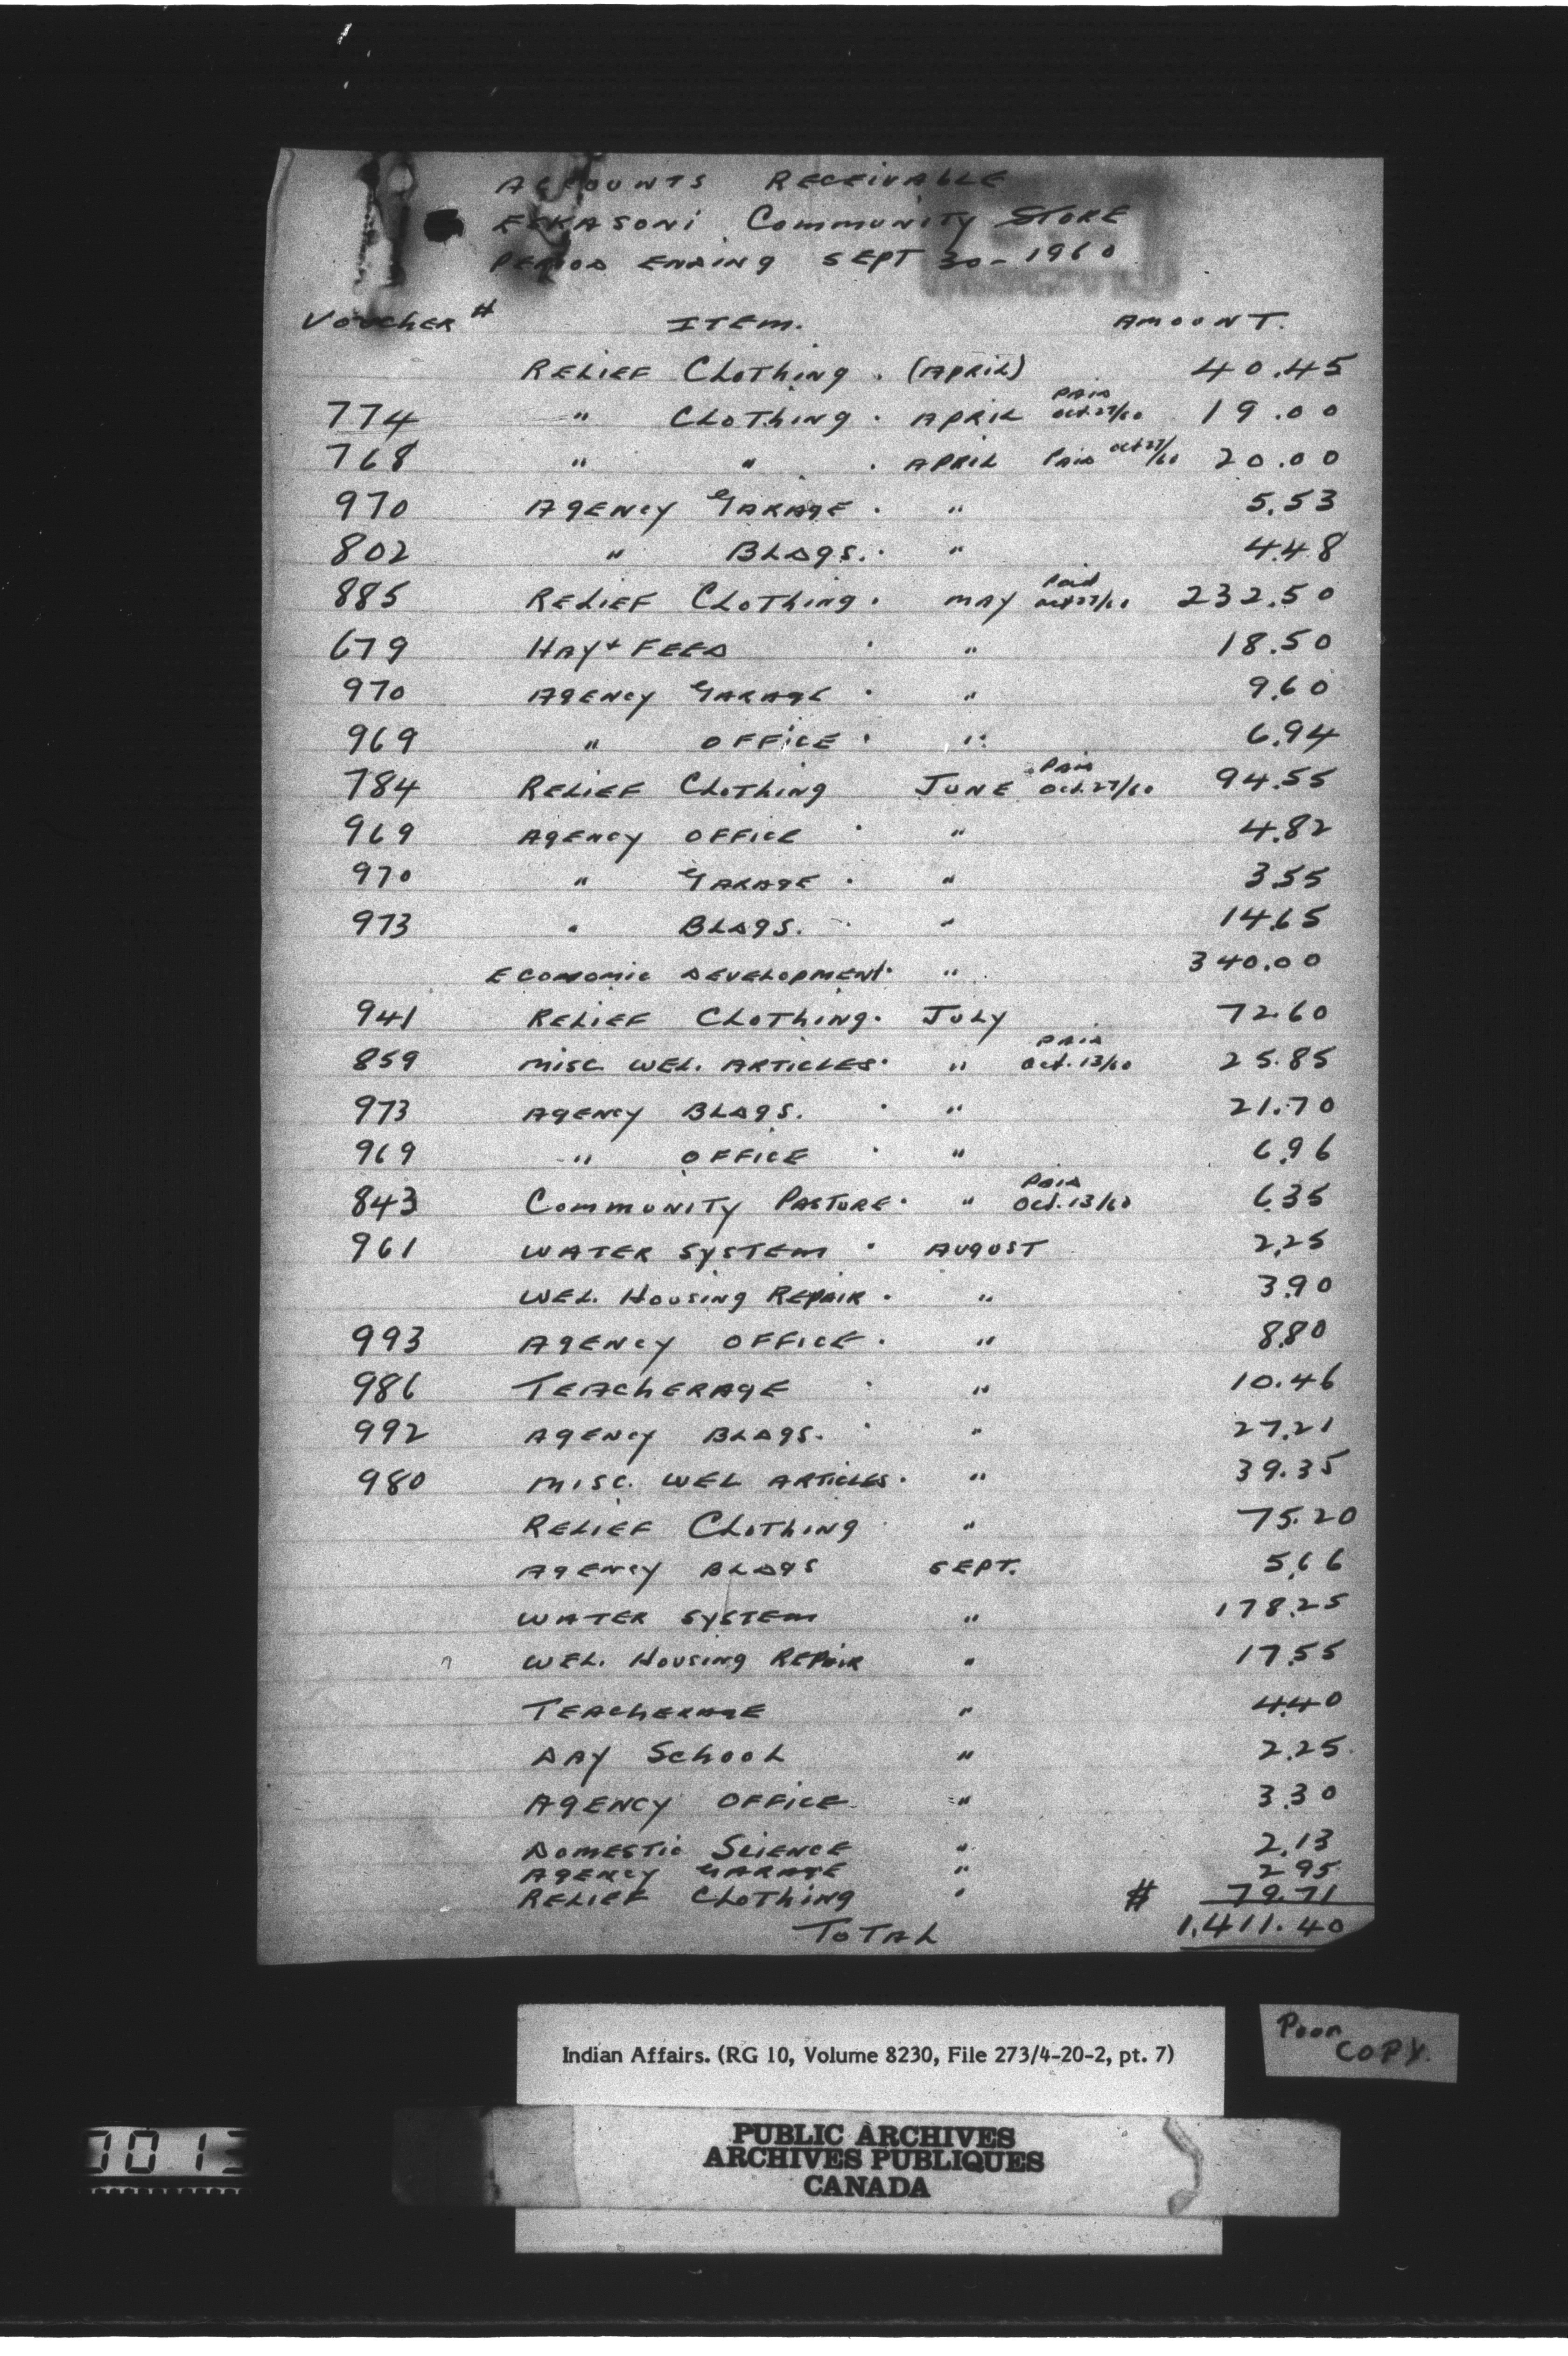 ACCOUNTS RECEIVABLE
ESKASONI COMMUNITY STORE
PERIOD ENDING SEPT 30 - 1960
VOUCHER # ITEM. AMOUNT.
RELIEF CLOTHING . (APRIL) 40.45
774 " CLOTHING . APRIL PAID Oct.27/60 19.00
768 " " . APRIL PAID Oct 27/60 20.00
970 AGENCY GARAGE . " 5.53
802 " BLDGS. . " 4.48
885 RELIEF CLOTHING . MAY Paid Oct 27/60 232.50
679 HAY + FEED . " 18.50
970 AGENCY GARAGE . " 9.60
969 " OFFICE . " 6.94
784 RELIEF CLOTHING JUNE PAID Oct.27/60 94.55
969 AGENCY OFFICE . " 4.82
970 " GARAGE . " 3.55
973 " BLDGS. . " 14.65
ECONOMIC DEVELOPMENT . " 340.00
941 RELIEF CLOTHING . JULY 72.60
859 MISC. WEL. ARTICLES . " PAID Oct. 13/60 25.85
973 AGENCY BLDGS. . " 21.70
969 " OFFICE . " 6.96
843 COMMUNITY PASTURE . " PAID Oct. 13/60 6.35
961 WATER SYSTEM . AUGUST 2.25
WEL. HOUSING REPAIR . " 3.90
993 AGENCY OFFICE . " 8.80
986 TEACHERAGE . " 10.46
992 AGENCY BLDGS. . " 27.21
980 MISC. WEL ARTICLES . " 39.35
RELIEF CLOTHING " 75.20
AGENCY BLDGS SEPT. 5.66
WATER SYSTEM " 178.25
WEL. HOUSING REPAIR " 17.55
TEACHERAGE " 4.40
DAY SCHOOL " 2.25
AGENCY OFFICE " 3.30
DOMESTIC SCIENCE " 2.13
AGENCY GARAGE " 2.95
RELIEF CLOTHING " # 79.71
TOTAL 1,411.40
Indian Affairs. (RG 10, Volume 8230, File 273/4-20-2, pt. 7)
Poor
COPY.
PUBLIC ARCHIVES
ARCHIVES PUBLIQUES
CANADA